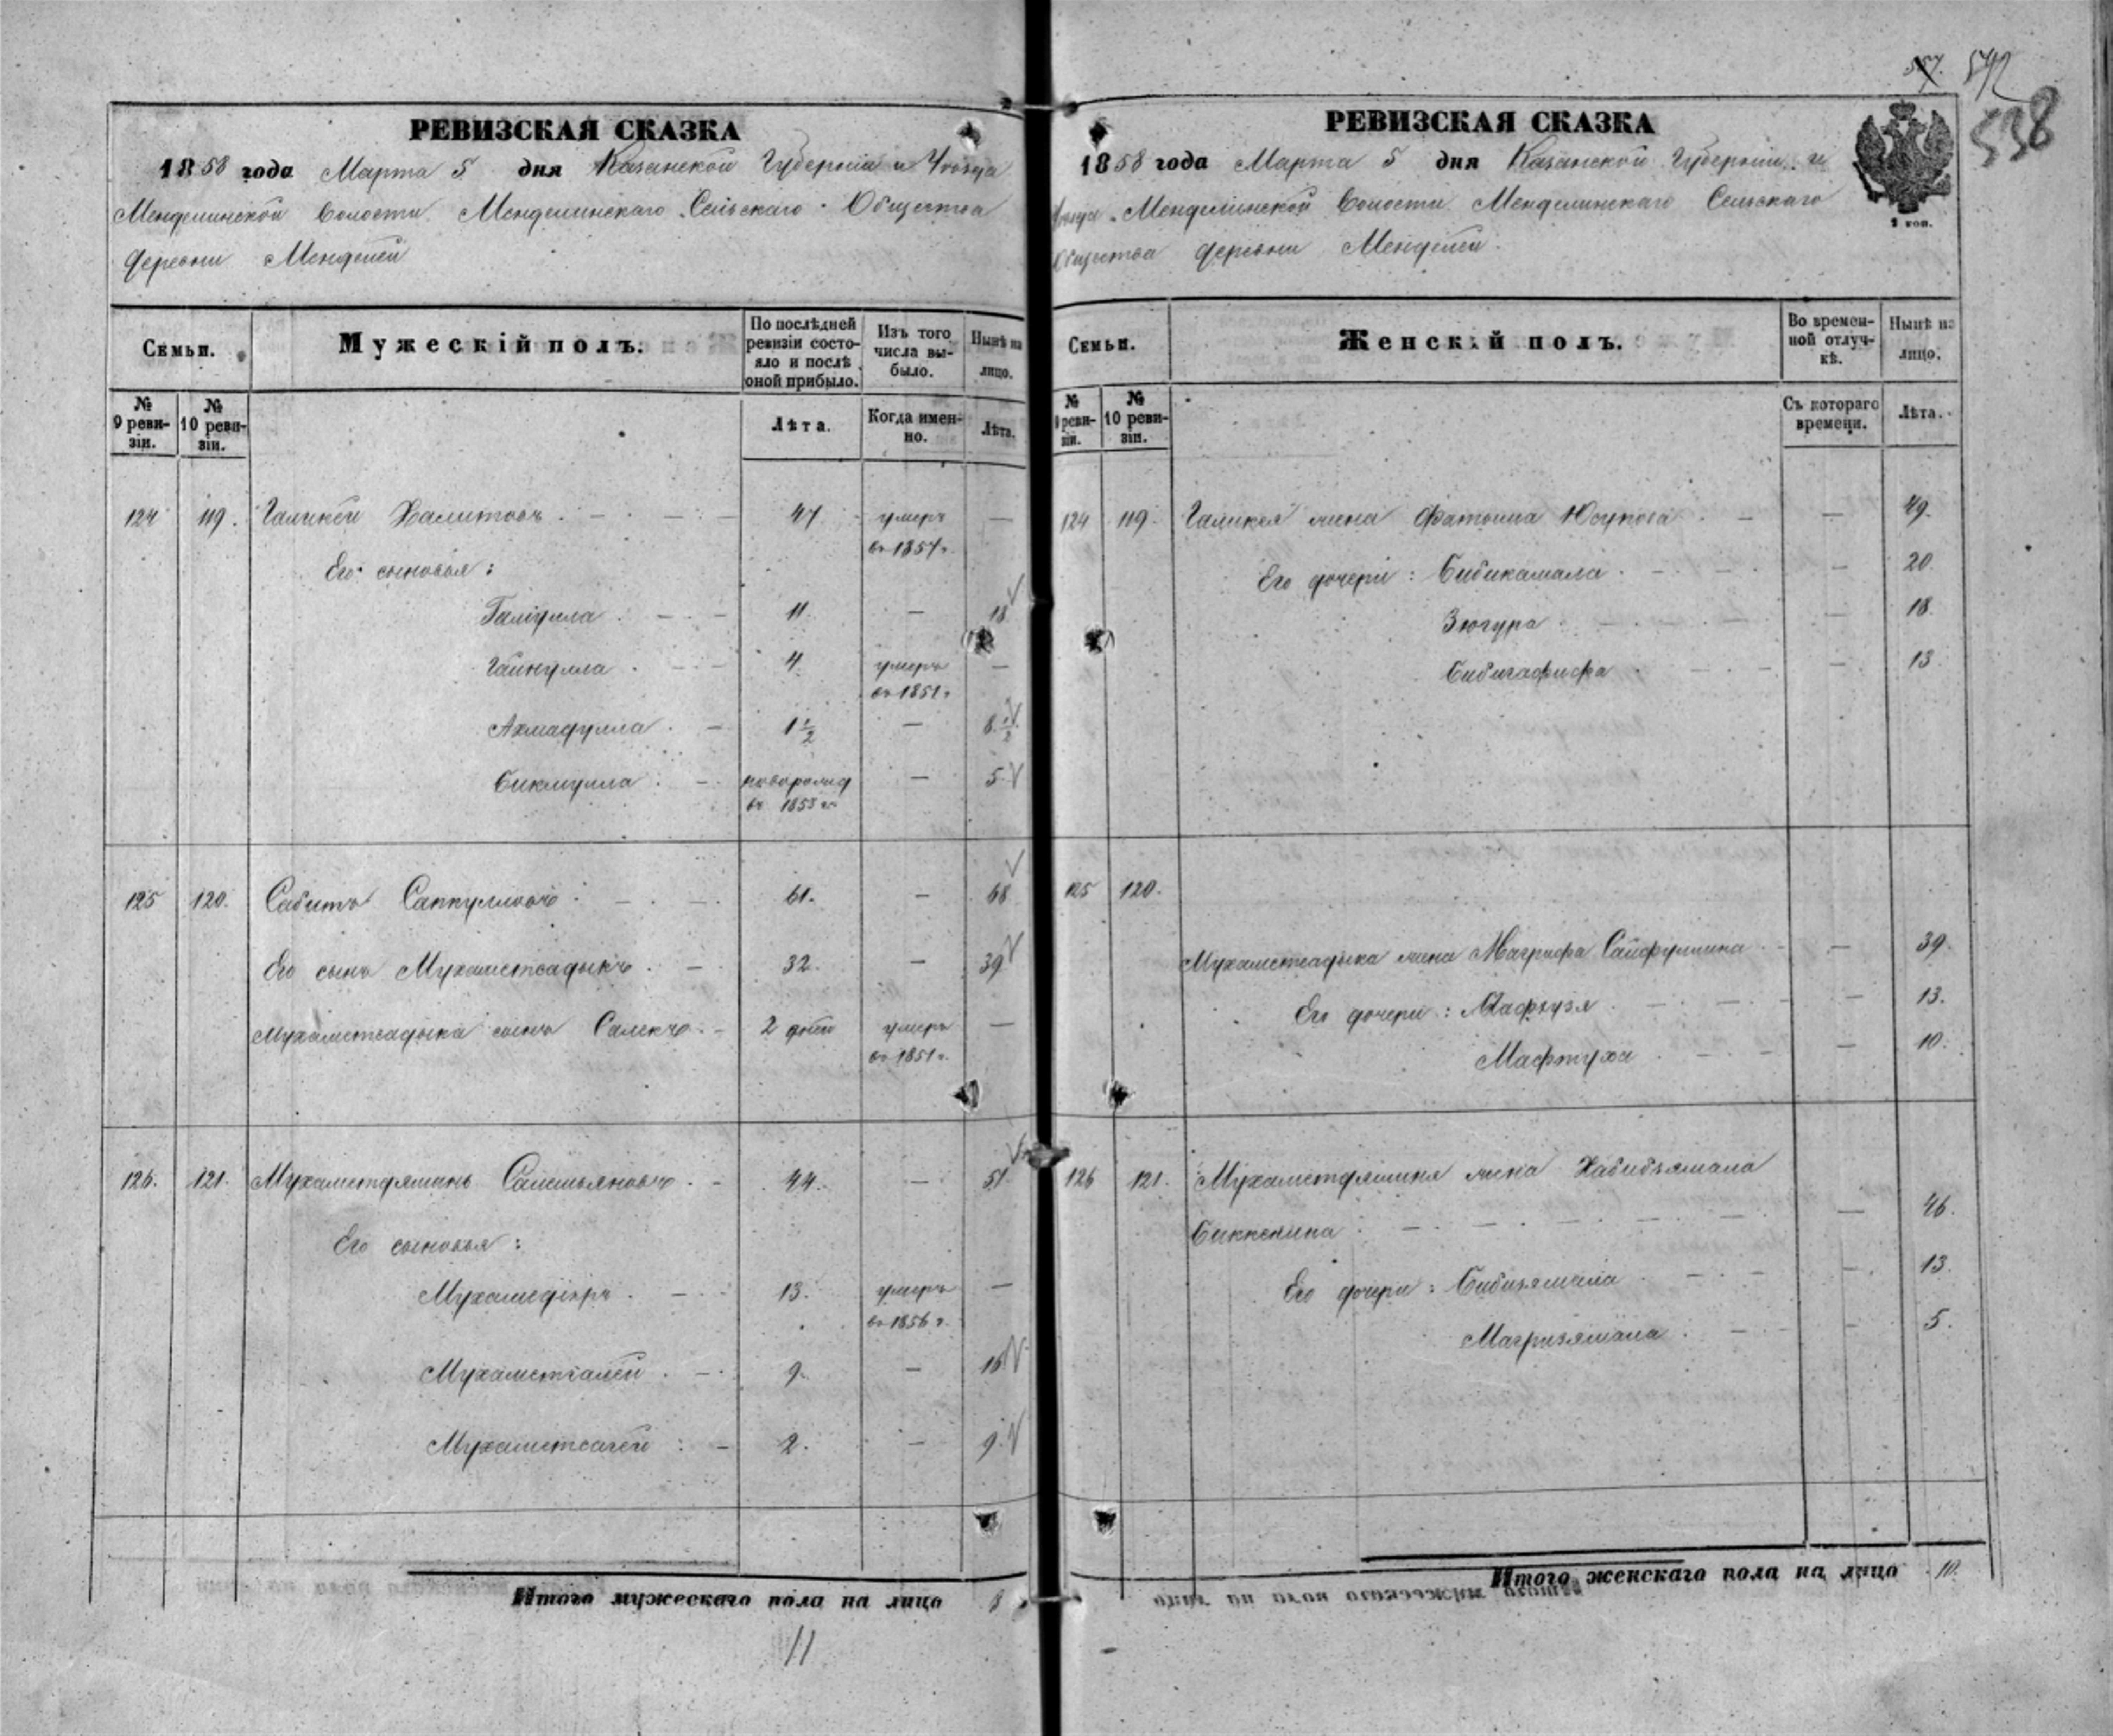 РЕВИЗСКАЯ СКАЗКА
1858 года Марта 5 дня Казанской Губерніи и Уѣзда
Менделинской Волости Менделинскаго Сельскаго Общества
деревни Менделей
Семьи.
Мужескій полъ.
По послѣдней ревизіи состояло и послѣ оной прибыло.
Изъ того числа выбыло.
Нынѣ на лицо.
№ 9 ревизіи.
№ 10 ревизіи.
Лѣта.
Когда именно.
Лѣта.
124 119. Галикей Халитовъ 47 умеръ —
въ 1857 г.
Его сыновья:
Галіулла 11. — 18
Гайнулла 4. умеръ —
въ 1851 г.
Ахмадулла 1 1/2 — 8 1/2
Бикмулла новорожд — 5
въ 1853 г.
125 120. Сабитъ Саппулловъ 61. — 68
Его сынъ Мухаметсадыкъ 32. — 39
Мухаметсадыка сынъ Салекъ 2 дней умеръ —
въ 1851 г.
126. 121. Мухаметдяминъ Салемьяновъ 44. — 51
Его сыновья:
Мухамедіяръ 13. умеръ —
въ 1856 г.
Мухаметгалей 9. — 16
Мухаметсагей 2. — 9.
Итого мужескаго пола на лицо 8
11
542
538
РЕВИЗСКАЯ СКАЗКА
1858 года Марта 5 дня Казанской Губерніи и
Уѣзда Менделинской Волости Менделинскаго Сельскаго
Общества деревни Менделей.
Семьи.
Женскій полъ.
Во временной отлучкѣ.
Нынѣ на лицо.
№ 9 ревизіи.
№ 10 ревизіи.
Съ котораго времени.
Лѣта.
124 119. Галикея жена Фатыма Юсупова — 49.
Его дочери: Бибикамала — 20.
Зюгура — 18.
Бибигафифа — 13
125 120.
Мухаметсадыка жена Магрифа Сайфуллина — 39.
Его дочери: Мафрузя — 13.
Мафтуха — 10.
126 121. Мухаметдяминя жена Хабибзямала
Биккенина — 46.
Его дочери: Бибизямала — 13.
Магризямала — 5.
Итого женскаго пола на лицо 10.